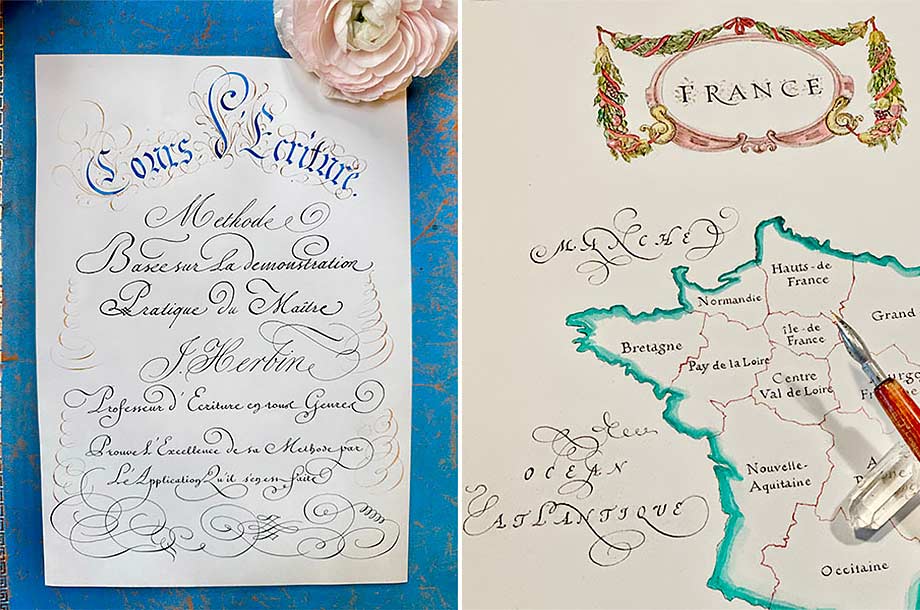 Cours d'Ecriture.
Methode
Basée sur La demonstration
Pratique du Maître
J. Herbin
Professeur d'Ecriture en tous Genres
Prouve L'Excellence de sa Methode par
L'Application Qu'il s'en est faite
FRANCE
MANCHE
Hauts-de
France
Normandie
Grand
île-de
France
Bretagne
Pay de la Loire
Centre
Val de Loire
OCEAN
ATLANTIQUE
Nouvelle-
Aquitaine
Occitaine